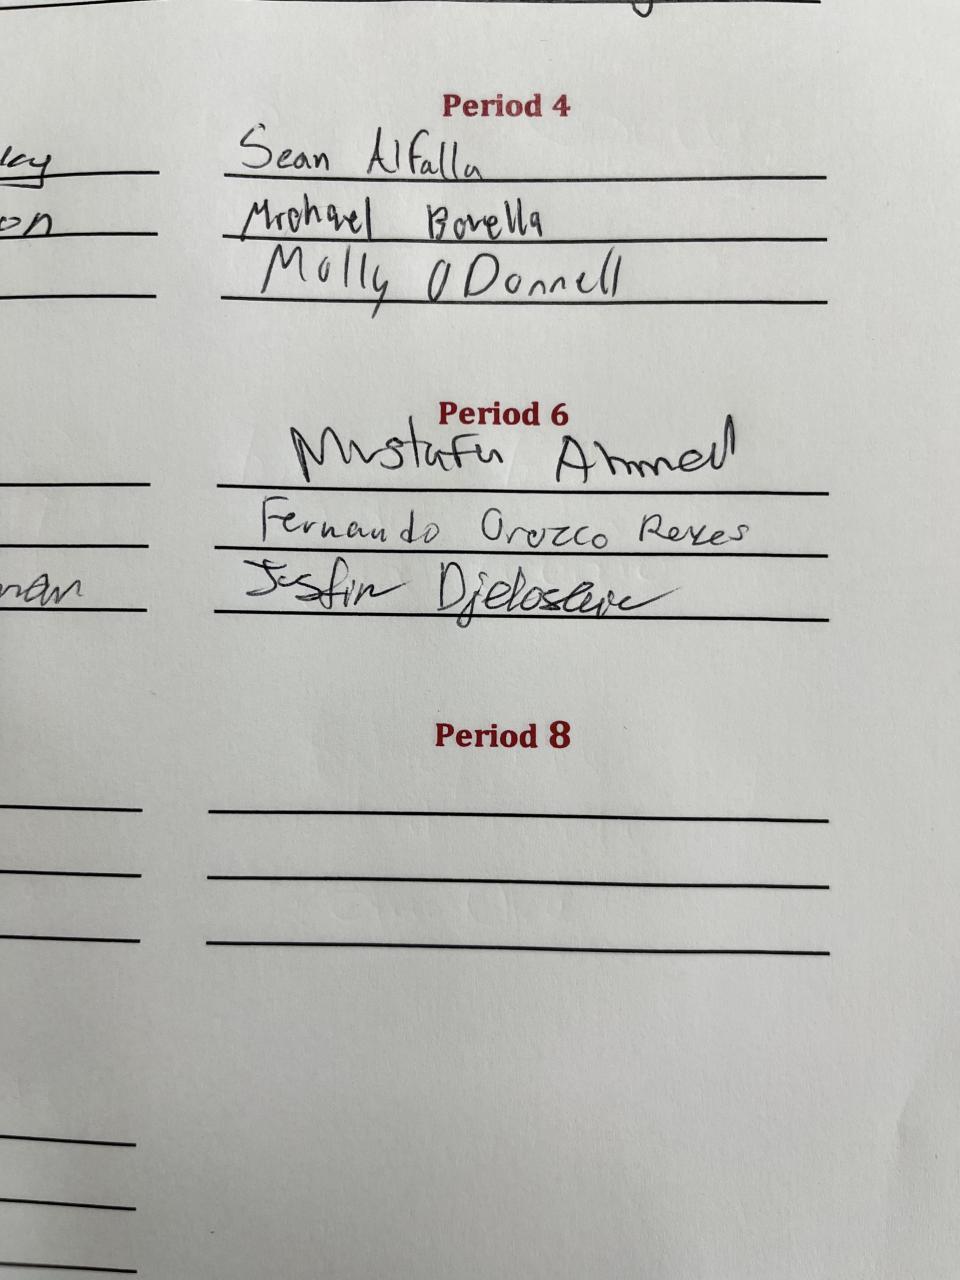 Period 4
Sean Alfalla
Michael Borella
Molly O'Donnell
Period 6
Mustafa Ahmed
Fernando Orozco Reyes
Justin
Period 8